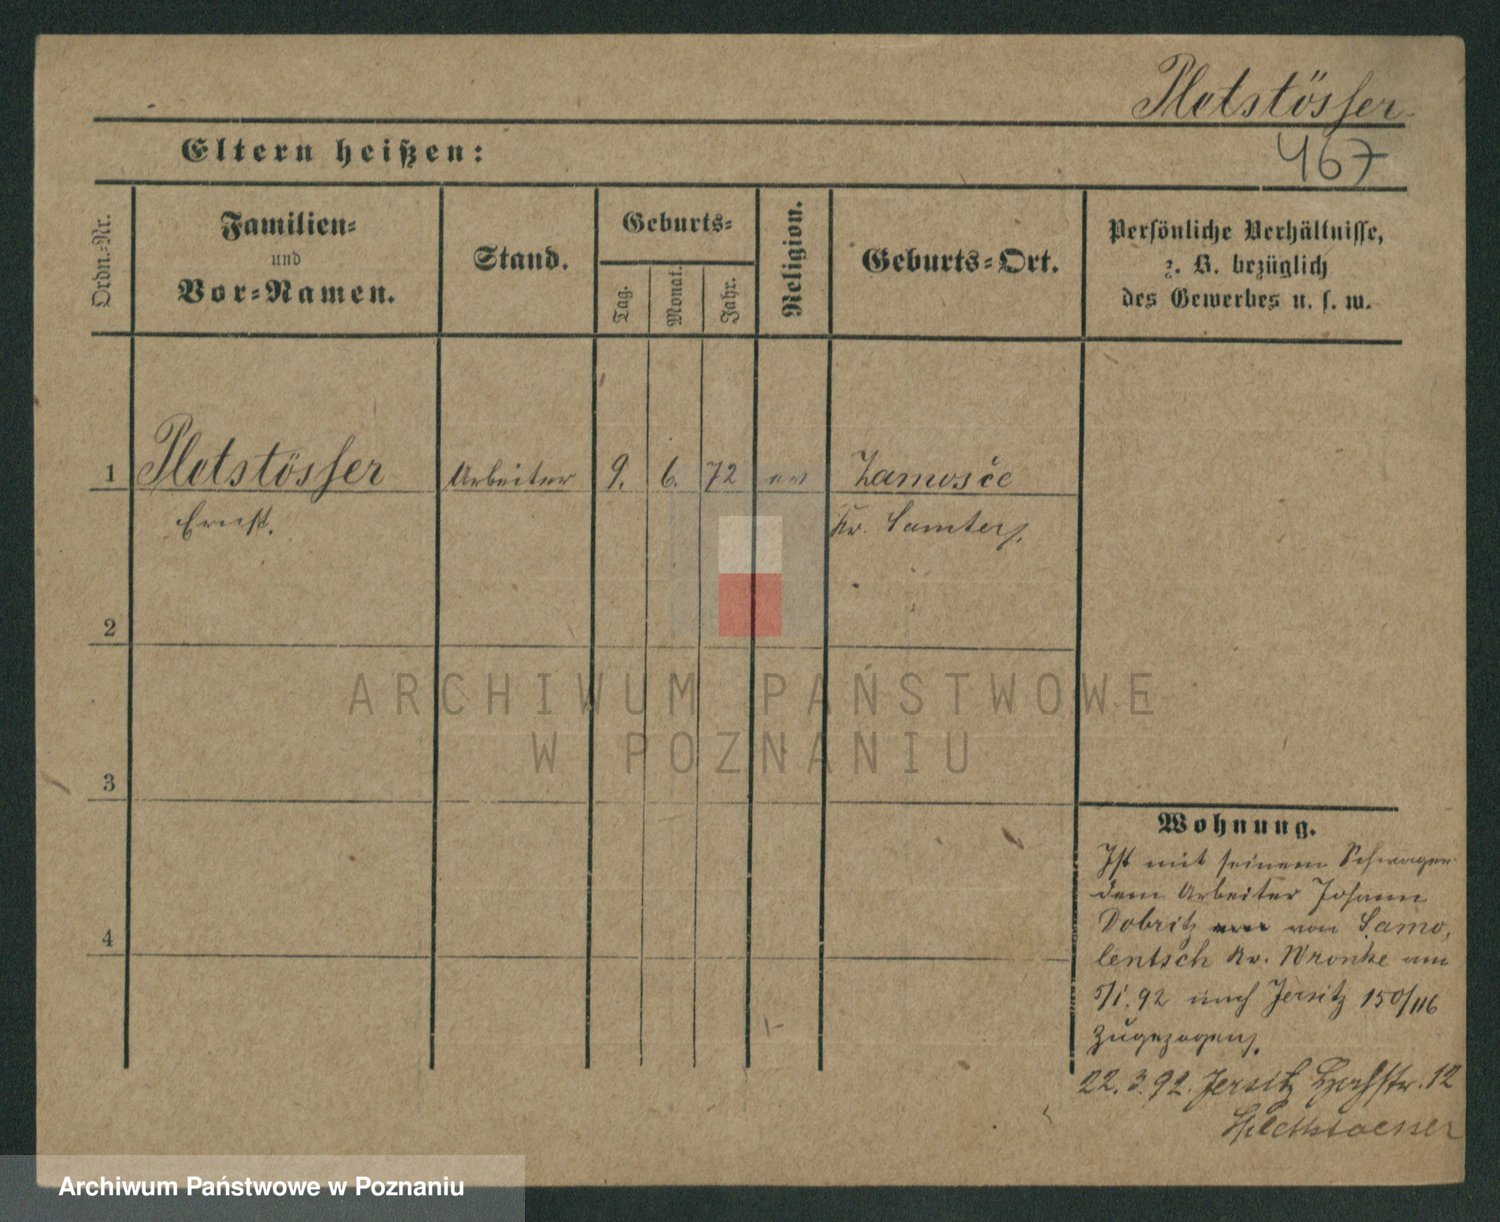 Pletstösser
467
Eltern heißen:
Ordn.-Nr.
Familien-
und
Vor-Namen.
Stand.
Geburts-
Tag.
Monat.
Jahr.
Religion.
Geburts-Ort.
Persönliche Verhältnisse,
z. B. bezüglich
des Gewerbes u. s. w.
1 Pletstösser Arbeiter 9. 6. 72 ev Zamosče
Ernst. Kr. Samter.
2
3
4
Wohnung.
Ist mit seinem Schwager
dem Arbeiter Johann
Dobritz von Samo,
lentsch Kr. Wronke am
5/1.92 nach Jersitz 150/116
zugezogen.
22.3.92. Jersitz 12
ARCHIWUM PAŃSTWOWE
W POZNANIU
Archiwum Państwowe w Poznaniu